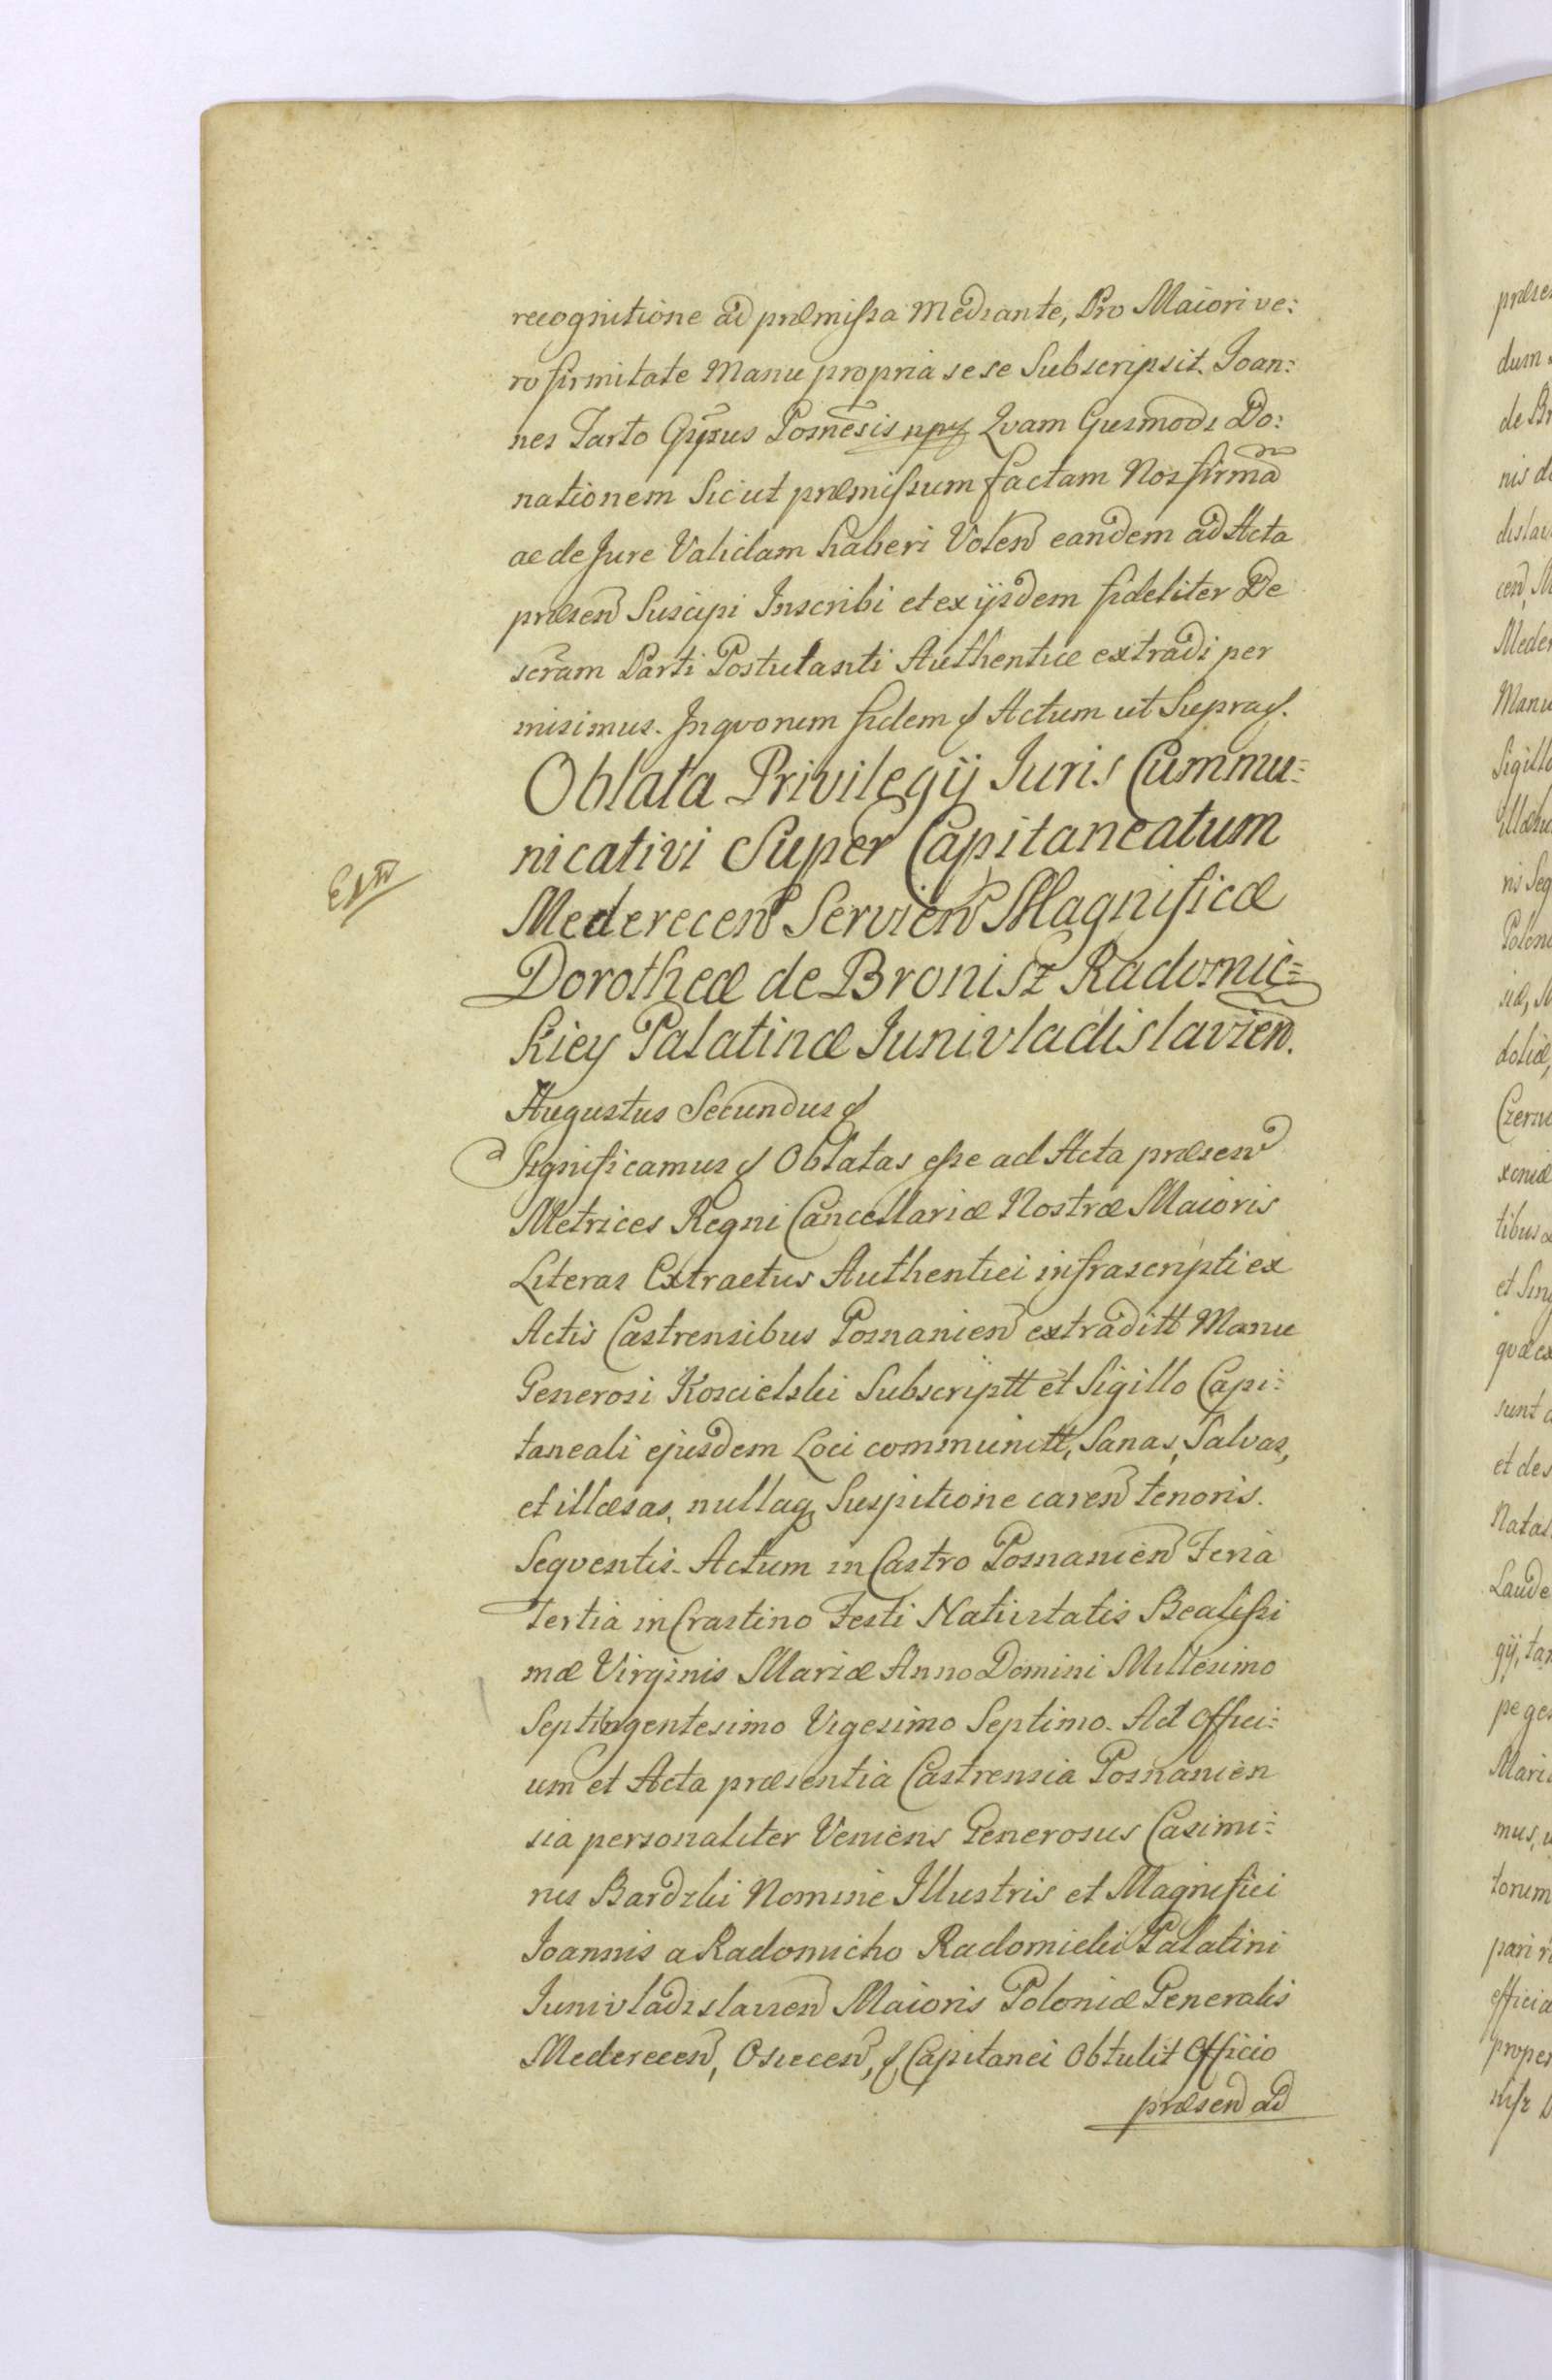 recognitione ad præmissa Mediante, Pro Maiori ve:
ro firmitate Manu propria sese Subscripsit. Joan:
nes Tarto Posnesis mp Qvam Gusmodi Do:
nationem Sicut præmissum factam Nos firma
ac de Jure Validam haberi Volen eandem ad Acta
præsen Suscipi Inscribi et ex ijsdem fideliter De
scram Parti Postulanti Authentice extradi per
misimus. In qvorum fidem & Actum ut Supra &.
Oblata Privilegij Iuris Cummu:
nicativi Super Capitaneatum
Mederecen Servien Magnificæ
Dorotheæ de Bronisz Radomic=
kiey Palatinæ Junivladislavien.
Extr
Augustus Secundus &
Significamus & Oblatas esse ad Acta præsen
Metrices Regni Cancellariæ Nostræ Maioris
Literas Extractus Authentici infrascripti ex
Actis Castrensibus Posnanien extraditt Manu
Generosi Koscielski Subscriptt et Sigillo Capi:
taneali ejusdem Loci communitt, Sanas, Salvas,
et illæsas, nullaq Suspitione caren tenoris.
Seqventis. Actum in Castro Posnanien Feria
Tertia in Crastino Festi Nativitatis Beatissi
mæ Virginis Mariæ Anno Domini Millesimo
Septingentesimo Vigesimo Septimo. Ad Offici:
um et Acta præsentia Castrensia Posnanien
sia personaliter Veniens Generosus Casimi:
rus Bardzki Nomine Illustris et Magnifici
Joannis a Radomicko Radomicki Palatini
Junivladislavien Maioris Poloniæ Generalis
Mederecen, Osiecen, & Capitanei Obtulit Officio
præsen ad